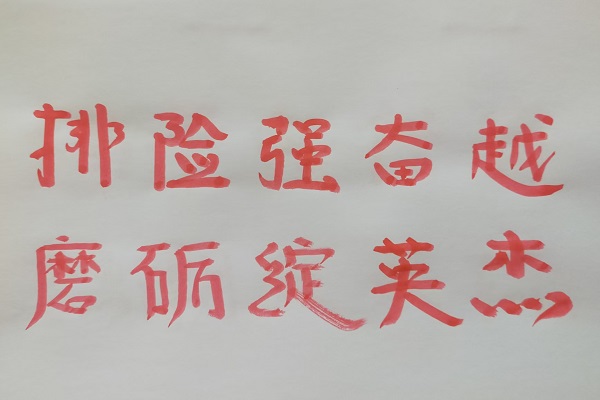 排险强奋越
磨砺绽英杰